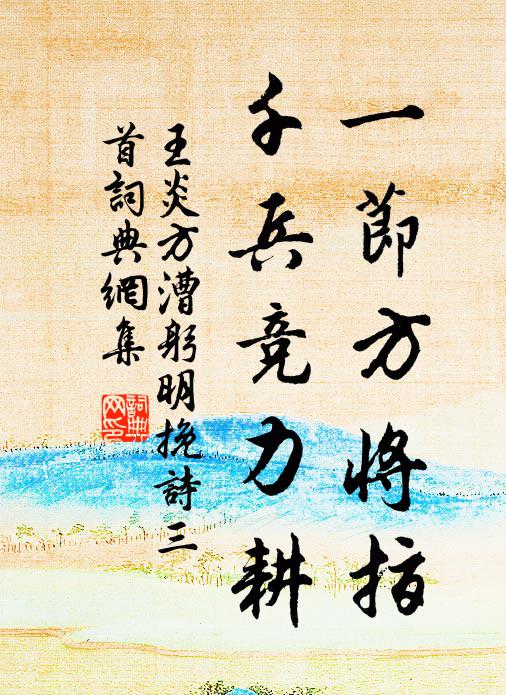 一節方將指
千兵競力耕
王炎方漕躬明挽詩三
首詞典網集
詞典網印